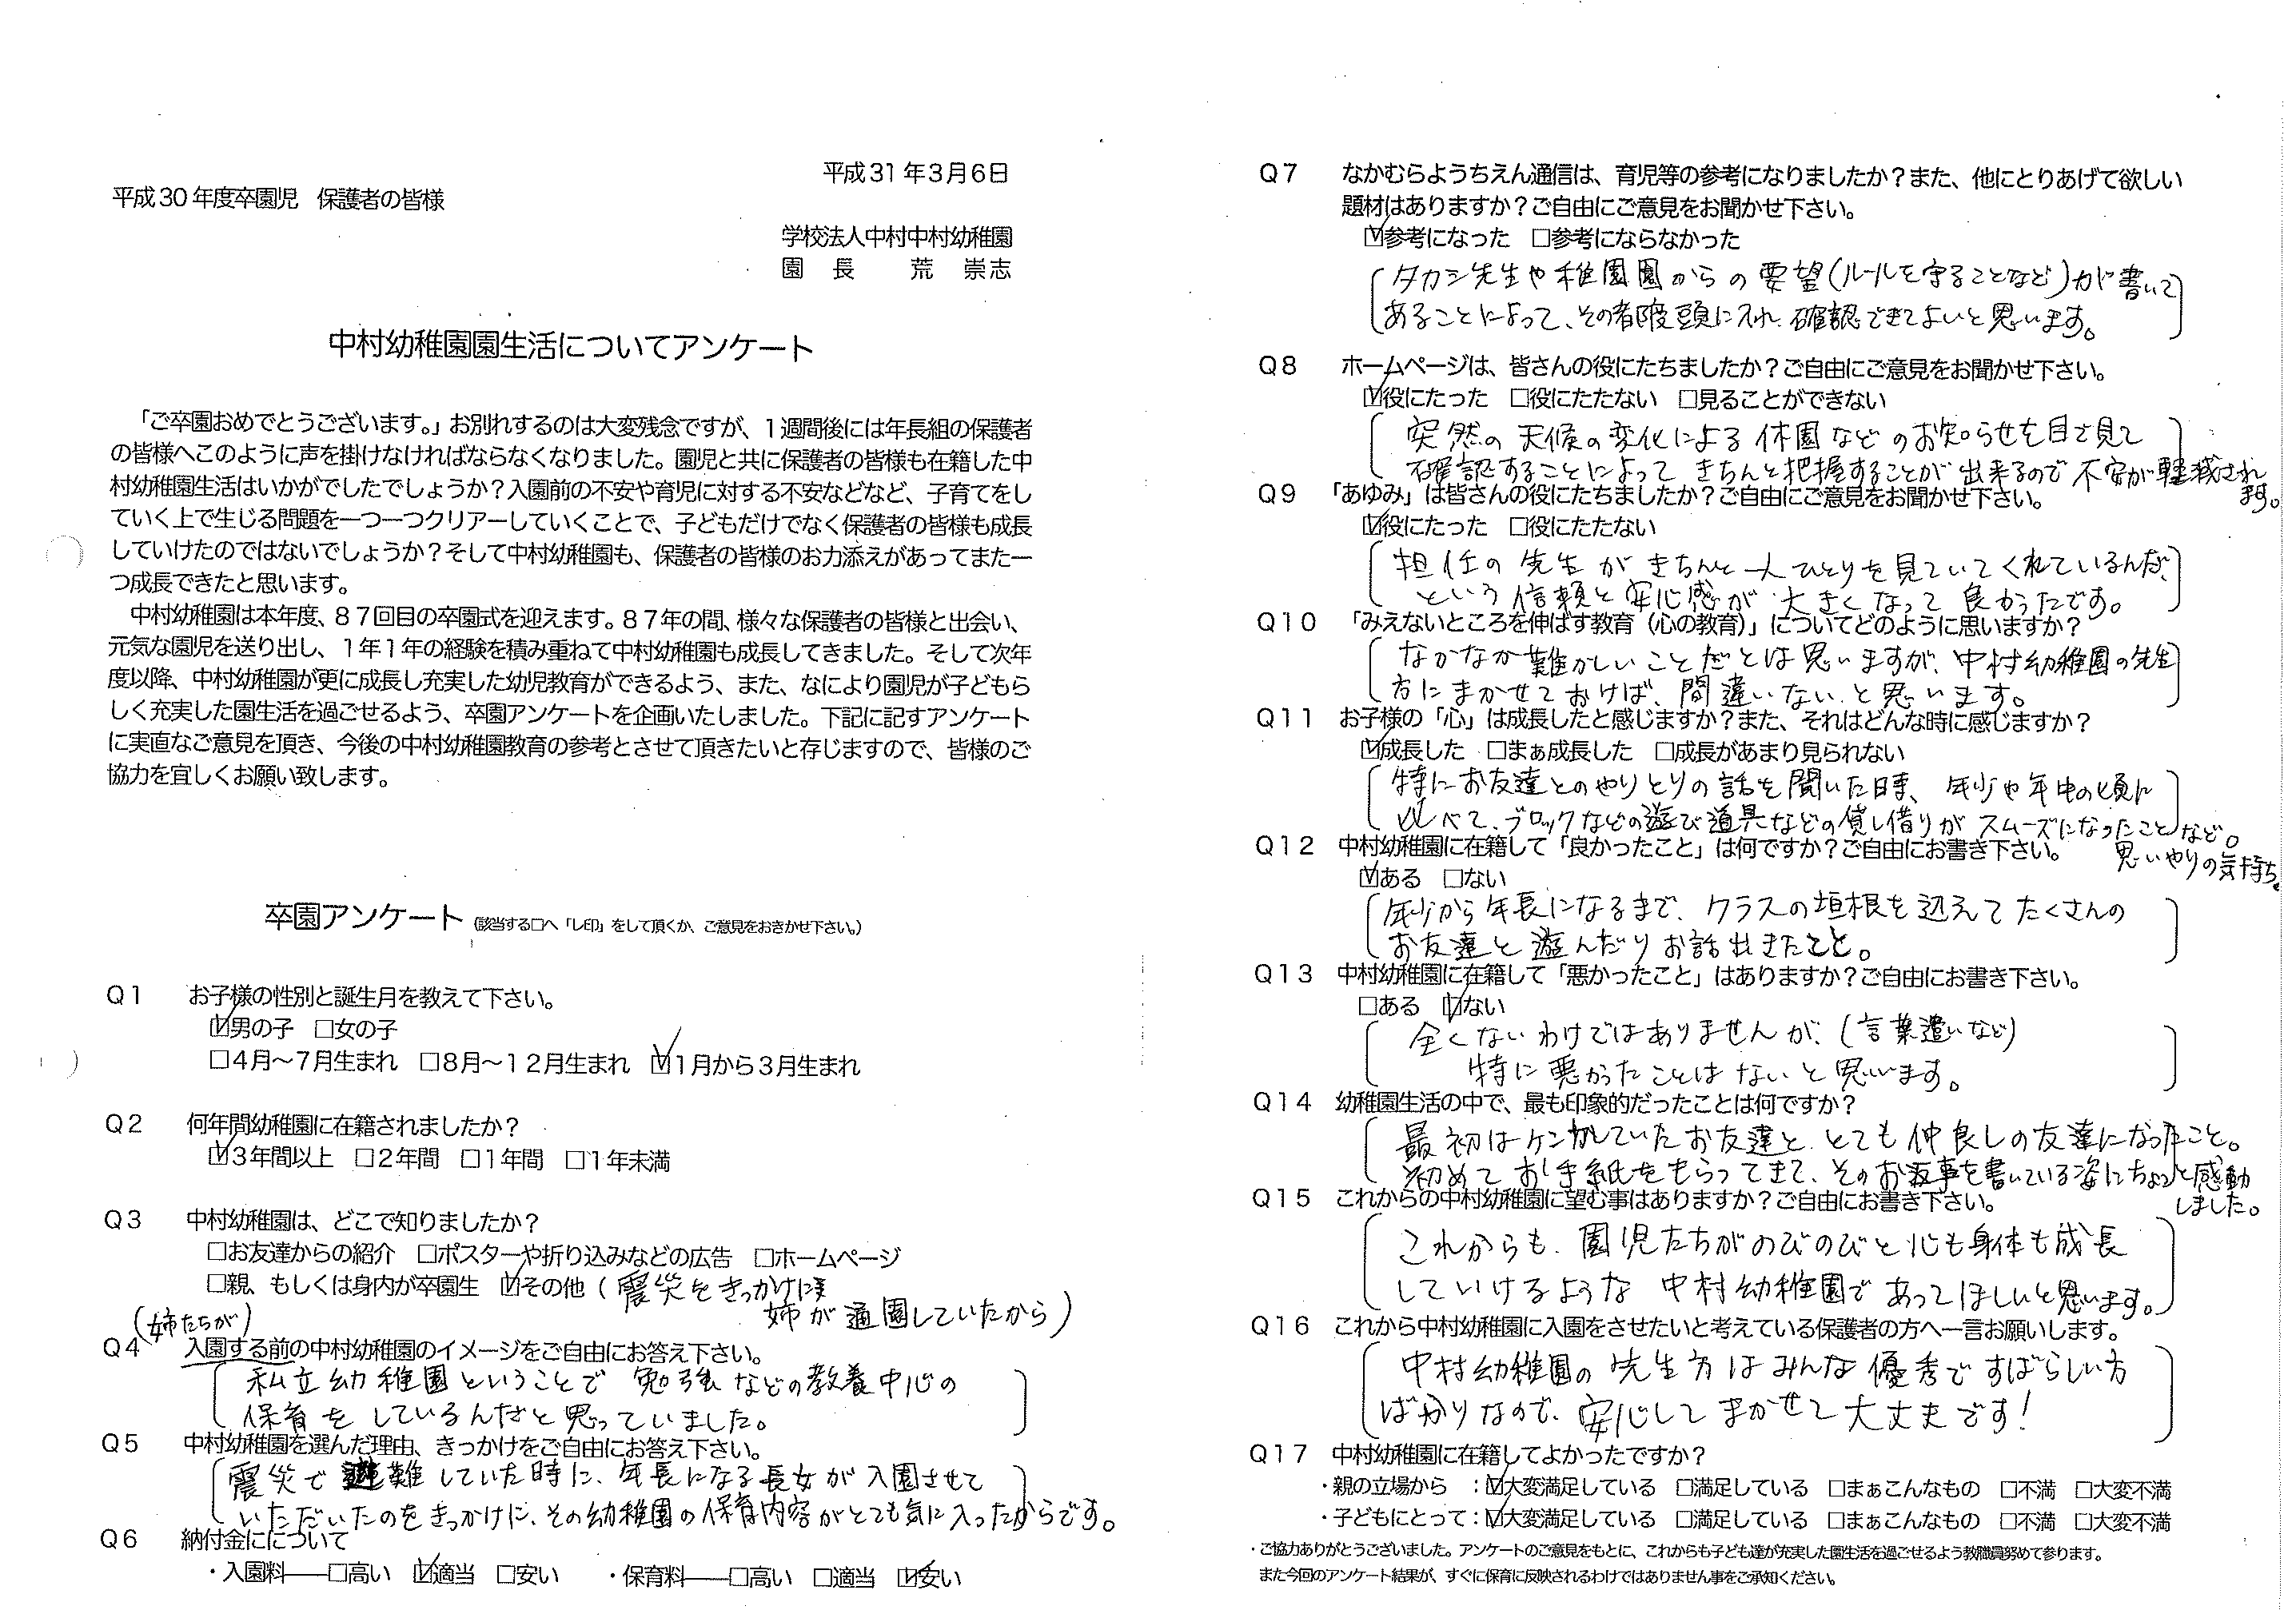 平成31年3月6日
平成30年度卒園児　保護者の皆様
学校法人中村中村幼稚園
園　長　　荒　崇志
中村幼稚園園生活についてアンケート
「ご卒園おめでとうございます。」お別れするのは大変残念ですが、１週間後には年長組の保護者
の皆様へこのように声を掛けなければならなくなりました。園児と共に保護者の皆様も在籍した中
村幼稚園生活はいかがでしたでしょうか？入園前の不安や育児に対する不安などなど、子育てをし
ていく上で生じる問題を一つ一つクリアーしていくことで、子どもだけでなく保護者の皆様も成長
していけたのではないでしょうか？そして中村幼稚園も、保護者の皆様のお力添えがあってまた一
つ成長できたと思います。
中村幼稚園は本年度、８７回目の卒園式を迎えます。８７年の間、様々な保護者の皆様と出会い、
元気な園児を送り出し、１年１年の経験を積み重ねて中村幼稚園も成長してきました。そして次年
度以降、中村幼稚園が更に成長し充実した幼児教育ができるよう、また、なにより園児が子どもら
しく充実した園生活を過ごせるよう、卒園アンケートを企画いたしました。下記に記すアンケート
に実直なご意見を頂き、今後の中村幼稚園教育の参考とさせて頂きたいと存じますので、皆様のご
協力を宜しくお願い致します。
卒園アンケート（該当する□へ「レ印」をして頂くか、ご意見をおきかせ下さい。）
Q１　お子様の性別と誕生月を教えて下さい。
☑男の子　□女の子
□４月～７月生まれ　□８月～１２月生まれ　☑１月から３月生まれ
Q２　何年間幼稚園に在籍されましたか？
☑３年間以上　□２年間　□１年間　□１年未満
Q３　中村幼稚園は、どこで知りましたか？
□お友達からの紹介　□ポスターや折り込みなどの広告　□ホームページ
□親、もしくは身内が卒園生　☑その他（震災をきっかけに
姉が通園していたから）
（姉たちが）
Q４　入園する前の中村幼稚園のイメージをご自由にお答え下さい。
私立幼稚園ということで 勉強などの教養中心の
保育をしているんだと思っていました。
Q５　中村幼稚園を選んだ理由、きっかけをご自由にお答え下さい。
震災で避難していた時に、年長になる長女が入園させて
いただいたのをきっかけに、その幼稚園の保育内容がとても気に入ったからです。
Q６　納付金にについて
・入園料――□高い　☑適当　□安い　・保育料――□高い　□適当　☑安い
Q７　なかむらようちえん通信は、育児等の参考になりましたか？また、他にとりあげて欲しい
題材はありますか？ご自由にご意見をお聞かせ下さい。
☑参考になった　□参考にならなかった
タカシ先生や稚園園からの要望（ルールを守ることなど）が書いて
あることによって、その都度頭に入れ、確認できてよいと思います。
Q８　ホームページは、皆さんの役にたちましたか？ご自由にご意見をお聞かせ下さい。
☑役にたった　□役にたたない　□見ることができない
突然の天候の変化による休園などのお知らせを目で見て
確認することによって きちんと把握することが出来るので不安が軽減され
ます。
Q９　「あゆみ」は皆さんの役にたちましたか？ご自由にご意見をお聞かせ下さい。
☑役にたった　□役にたたない
担任の先生がきちんと一人ひとりを見ていてくれているんだ、
という信頼と安心感が大きくなって良かったです。
Q１０　「みえないところを伸ばす教育（心の教育）」についてどのように思いますか？
なかなか難かしいことだとは思いますが、中村幼稚園の先生
方にまかせておけば、間違いないと思います。
Q１１　お子様の「心」は成長したと感じますか？また、それはどんな時に感じますか？
☑成長した　□まぁ成長した　□成長があまり見られない
特にお友達とのやりとりの話を聞いた時、年少や年中の頃に
比べて、ブロックなどの遊び道具などの貸し借りがスムーズになったことなど。
思いやりの気持ち。
Q１２　中村幼稚園に在籍して「良かったこと」は何ですか？ご自由にお書き下さい。
☑ある　□ない
年少から年長になるまで、クラスの垣根を越えてたくさんの
お友達と遊んだりお話出きたこと。
Q１３　中村幼稚園に在籍して「悪かったこと」はありますか？ご自由にお書き下さい。
□ある　☑ない
全くないわけではありませんが、（言葉遣いなど）
特に悪かったことはないと思います。
Q１４　幼稚園生活の中で、最も印象的だったことは何ですか？
最初はケンカしていたお友達と、とても仲良しの友達になったこと。
初めてお手紙をもらってきて、そのお返事を書いている姿にちょっと感動
しました。
Q１５　これからの中村幼稚園に望む事はありますか？ご自由にお書き下さい。
これからも、園児たちがのびのびと心も身体も成長
していけるような 中村幼稚園であってほしいと思います。
Q１６　これから中村幼稚園に入園をさせたいと考えている保護者の方へ一言お願いします。
中村幼稚園の先生方はみんな優秀ですばらしい方
ばかりなので、安心してまかせて大丈夫です！
Q１７　中村幼稚園に在籍してよかったですか？
・親の立場から　：☑大変満足している　□満足している　□まぁこんなもの　□不満　□大変不満
・子どもにとって：☑大変満足している　□満足している　□まぁこんなもの　□不満　□大変不満
・ご協力ありがとうございました。アンケートのご意見をもとに、これからも子ども達が充実した園生活を過ごせるよう教職員努めて参ります。
また今回のアンケート結果が、すぐに保育に反映されるわけではありません事をご承知ください。